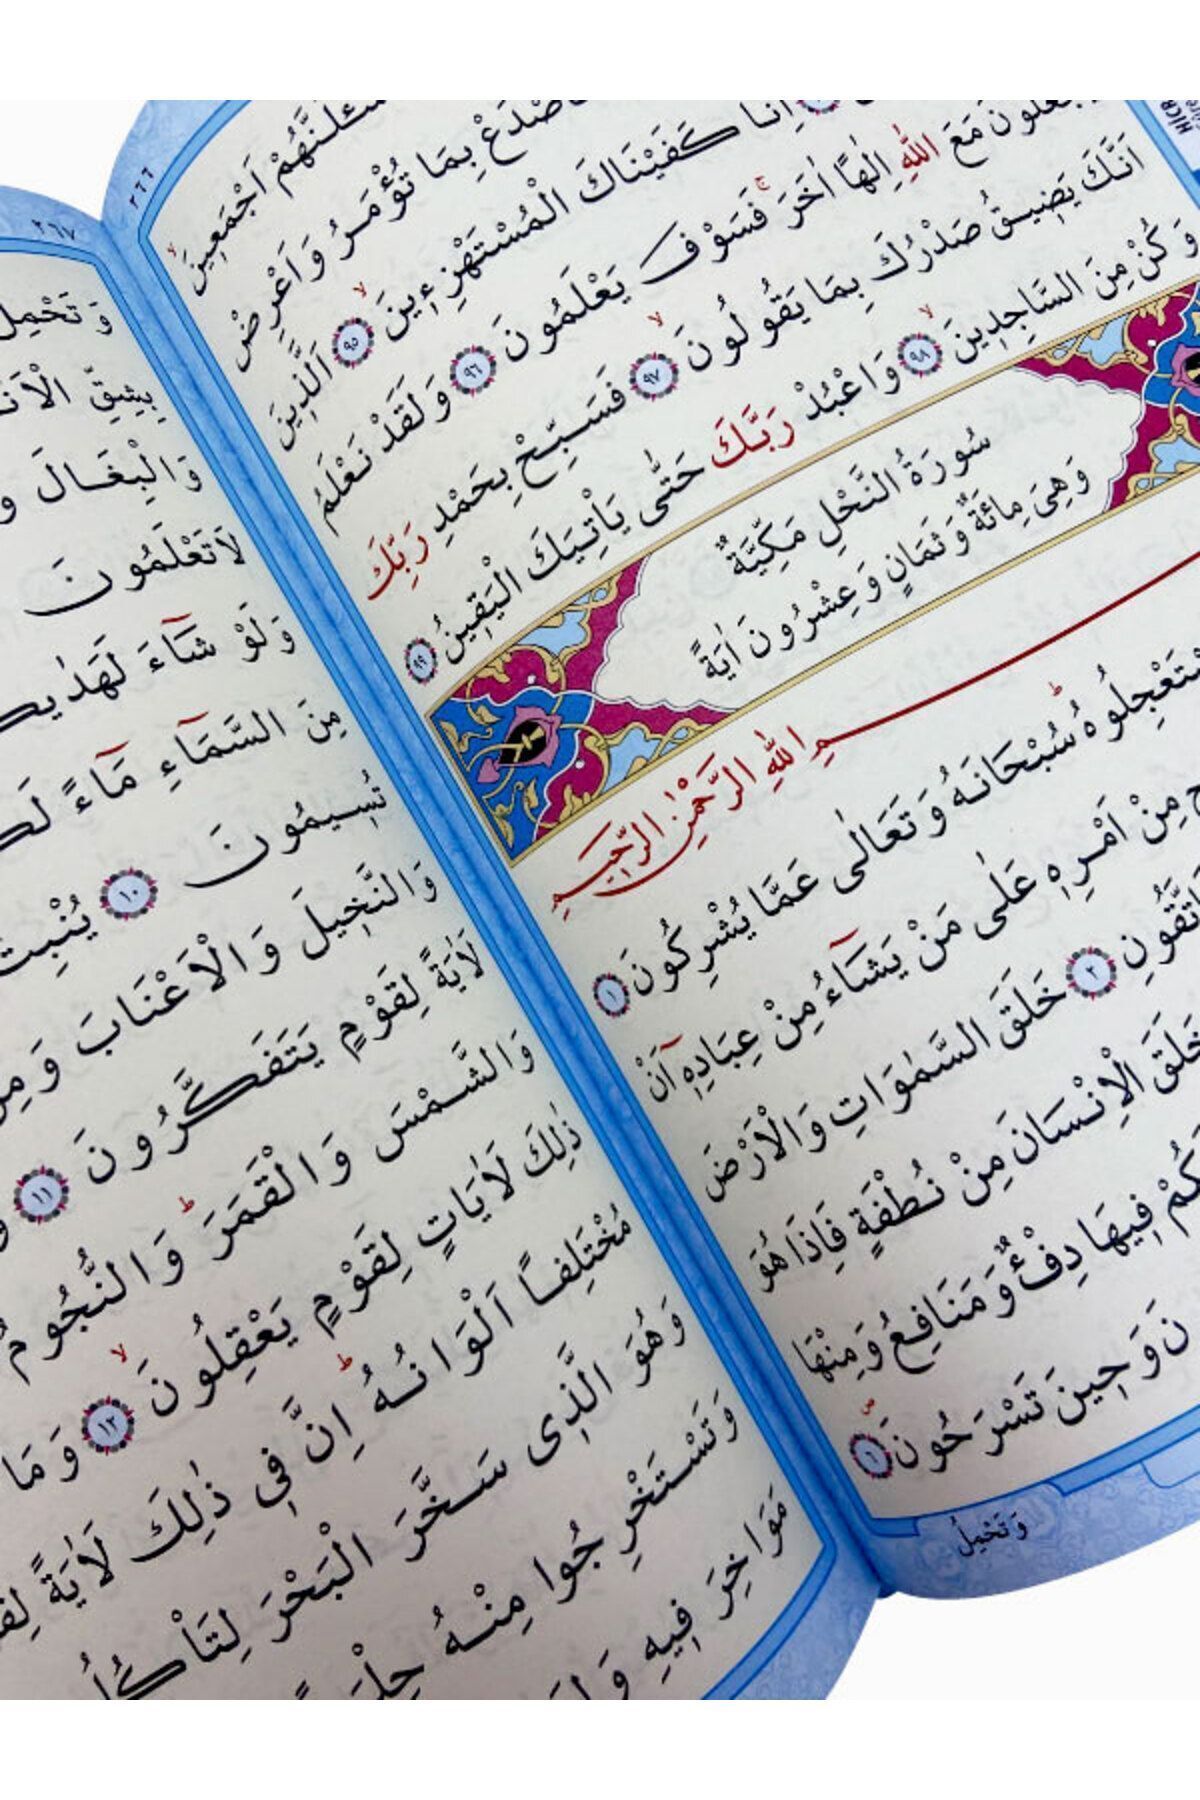 ٢٦٦
سْـَٔلَنَّهُمْ اَجْمَع۪ينَۙ
فَاصْدَعْ بِمَا تُؤْمَرُ وَاَعْرِضْ
اِنَّا كَفَيْنَاكَ الْمُسْتَهْزِء۪ينَۙ ﴿٩٥﴾ اَلَّذ۪ينَ
يَجْعَلُونَ مَعَ اللّٰهِ اِلٰهًا اٰخَرَۚ فَسَوْفَ يَعْلَمُونَ ﴿٩٦﴾ وَلَقَدْ نَعْلَمُ
اَنَّكَ يَض۪يقُ صَدْرُكَ بِمَا يَقُولُونَۙ ﴿٩٧﴾ فَسَبِّحْ بِحَمْدِ رَبِّكَ
وَكُنْ مِنَ السَّاجِد۪ينَۙ ﴿٩٨﴾ وَاعْبُدْ رَبَّكَ حَتّٰى يَأْتِيَكَ الْيَق۪ينُ ﴿٩٩﴾
سُورَةُ النَّحْلِ مَكِّيَّةٌ
وَهِيَ مِائَةٌ وَثَمَانٍ وَعِشْرُونَ اٰيَةً
بِسْمِ اللّٰهِ الرَّحْمٰنِ الرَّح۪يمِ
سْتَعْجِلُوهُۜ سُبْحَانَهُ وَتَعَالٰى عَمَّا يُشْرِكُونَ ﴿١﴾
مِنْ اَمْرِه۪ عَلٰى مَنْ يَشَٓاءُ مِنْ عِبَادِه۪ٓ اَنْ
فَاتَّقُونِ ﴿٢﴾ خَلَقَ السَّمٰوَاتِ وَالْاَرْضَ
خَلَقَ الْاِنْسَانَ مِنْ نُطْفَةٍ فَاِذَا هُوَ
لَكُمْ ف۪يهَا دِفْءٌ وَمَنَافِعُ وَمِنْهَا
نَ وَح۪ينَ تَسْرَحُونَۖ ﴿٦﴾
وَتَحْمِلُ
٢٦٧
وَتَحْمِلُ
بِشِقِّ الْاَنْ
وَالْبِغَالَ وَ
لَا تَعْلَمُونَ
وَلَوْ شَٓاءَ لَهَدٰيكُ
مِنَ السَّمَٓاءِ مَٓاءً لَكُ
تُس۪يمُونَ ﴿١٠﴾ يُنْبِتُ
وَالنَّخ۪يلَ وَالْاَعْنَابَ وَمِنْ
لَاٰيَةً لِقَوْمٍ يَتَفَكَّرُونَ ﴿١١﴾ وَ
وَالشَّمْسَ وَالْقَمَرَۜ وَالنُّجُومُ
ذٰلِكَ لَاٰيَاتٍ لِقَوْمٍ يَعْقِلُونَۙ ﴿١٢﴾ وَمَا
مُخْتَلِفًا اَلْوَانُهُۜ اِنَّ ف۪ي ذٰلِكَ لَاٰيَةً لِقَ
وَهُوَ الَّذ۪ي سَخَّرَ الْبَحْرَ لِتَأْكُلُ
وَتَسْتَخْرِجُوا مِنْهُ حِلْيَةً
مَوَاخِرَ ف۪يهِ وَلِ